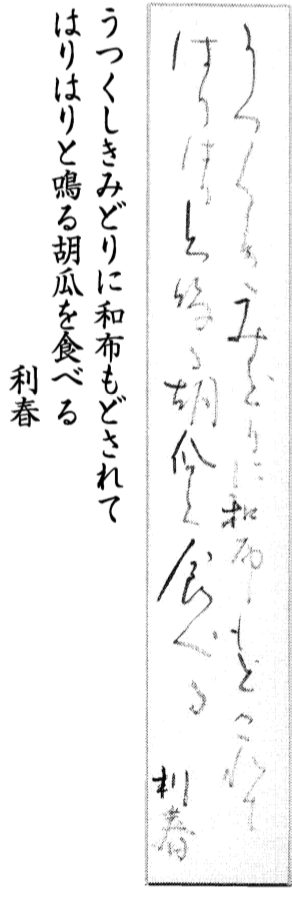 うつくしきみどりに和布もどされて
はりはりと鳴る胡瓜を食べる
利春
うつくしきみどりに和布もどされて
はりはりと鳴る胡瓜を食べる
利春